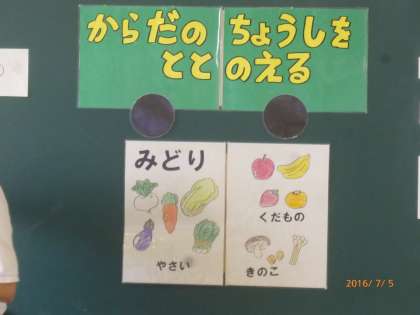 からだの ちょうしを
ととのえる
みどり
やさい
くだもの
きのこ
2016/ 7/ 5